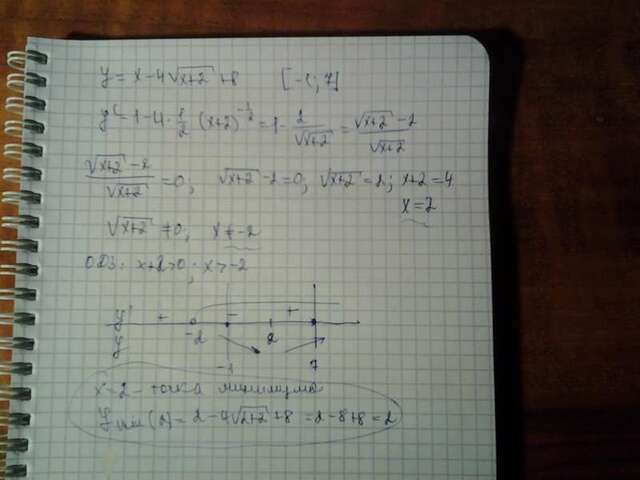 y = x-4√(x+2) +8 [-1; 7]
y' = 1-4·1/2 (x+2)^(-1/2) = 1- 2/√(x+2) = (√(x+2) -2)/√(x+2)
(√(x+2) -2)/√(x+2) =0; √(x+2) -2=0; √(x+2) =2; x+2=4
x=2
√(x+2) ≠0; x≠-2
ОДЗ: x+2>0; x>-2
y' + - +
-2 2
y
-1 7
x=2 - точка минимума
y min (2)= 2-4√(2+2) +8 =2-8+8=2